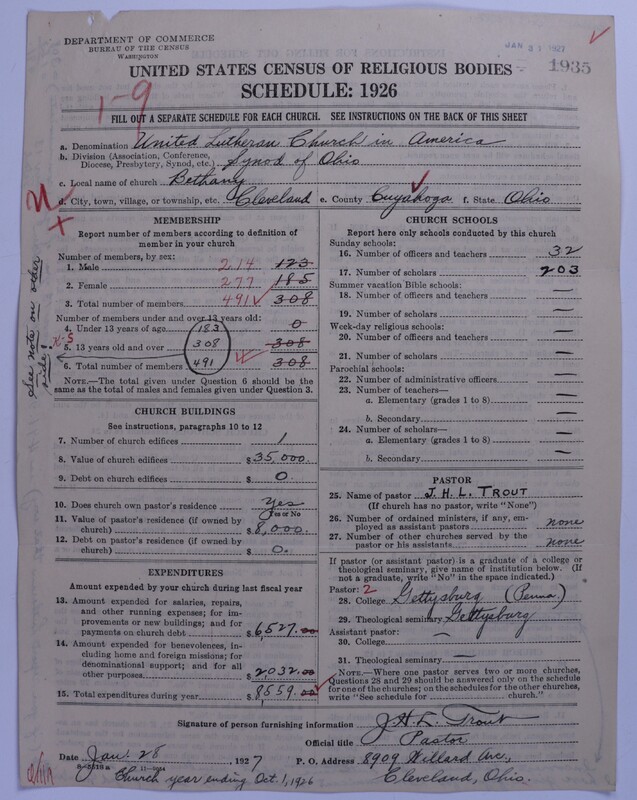 DEPARTMENT OF COMMERCE
BUREAU OF THE CENSUS
WASHINGTON
JAN 31 1927
1935
UNITED STATES CENSUS OF RELIGIOUS BODIES
SCHEDULE: 1926
1-9
FILL OUT A SEPARATE SCHEDULE FOR EACH CHURCH. SEE INSTRUCTIONS ON THE BACK OF THIS SHEET
a. Denomination United Lutheran Church in America
b. Division (Association, Conference, Diocese, Presbytery, Synod, etc.) Synod of Ohio
c. Local name of church Bethany
d. City, town, village, or township, etc. Cleveland e. County Cuyahoga f. State Ohio
MEMBERSHIP
Report number of members according to definition of
member in your church
Number of members, by sex:
1. Male 214 123
2. Female 277 185
3. Total number of members 491 308
Number of members under and over 13 years old:
4. Under 13 years of age 183 0
5. 13 years old and over 308 308
6. Total number of members 491 308
NOTE.—The total given under Question 6 should be
the same as the total of males and females given under Question 3.
See note on other
side!
CHURCH BUILDINGS
See instructions, paragraphs 10 to 12
7. Number of church edifices 1
8. Value of church edifices $35,000.
9. Debt on church edifices $0.
10. Does church own pastor's residence Yes
Yes or No
11. Value of pastor's residence (if owned by
church) $8,000.
12. Debt on pastor's residence (if owned by
church) $0.
EXPENDITURES
Amount expended by your church during last fiscal year
13. Amount expended for salaries, repairs,
and other running expenses; for im-
provements or new buildings; and for
payments on church debt $6,527.00
14. Amount expended for benevolences,
including home and foreign missions; for
denominational support; and for all
other purposes $2032.00
15. Total expenditures during year $8559.00
CHURCH SCHOOLS
Report here only schools conducted by this church
Sunday schools:
16. Number of officers and teachers 32
17. Number of scholars 203
Summer vacation Bible schools:
18. Number of officers and teachers —
19. Number of scholars —
Week-day religious schools:
20. Number of officers and teachers —
21. Number of scholars —
Parochial schools:
22. Number of administrative officers —
23. Number of teachers—
a. Elementary (grades 1 to 8) —
b. Secondary —
24. Number of scholars—
a. Elementary (grades 1 to 8) —
b. Secondary —
PASTOR
25. Name of pastor J. H. L. TROUT
(If church has no pastor, write "None")
26. Number of ordained ministers, if any, em-
ployed as assistant pastors none
27. Number of other churches served by the
pastor or his assistants none
If pastor (or assistant pastor) is a graduate of a college or
theological seminary, give name of institution below. (If
not a graduate, write "No" in the space indicated.)
Pastor: 2
28. College Gettysburg (Penna)
29. Theological seminary Gettysburg
Assistant pastor:
30. College —
31. Theological seminary —
NOTE.—Where one pastor serves two or more churches,
Questions 28 and 29 should be answered only on the schedule
for one of the churches; on the schedules for the other churches,
write "See schedule for ______ church."
Signature of person furnishing information J. H. L. Trout
Official title Pastor
Date Jan. 28 1927 P. O. Address 8909 Willard Ave,
Church year ending Oct. 1, 1926 Cleveland, Ohio.